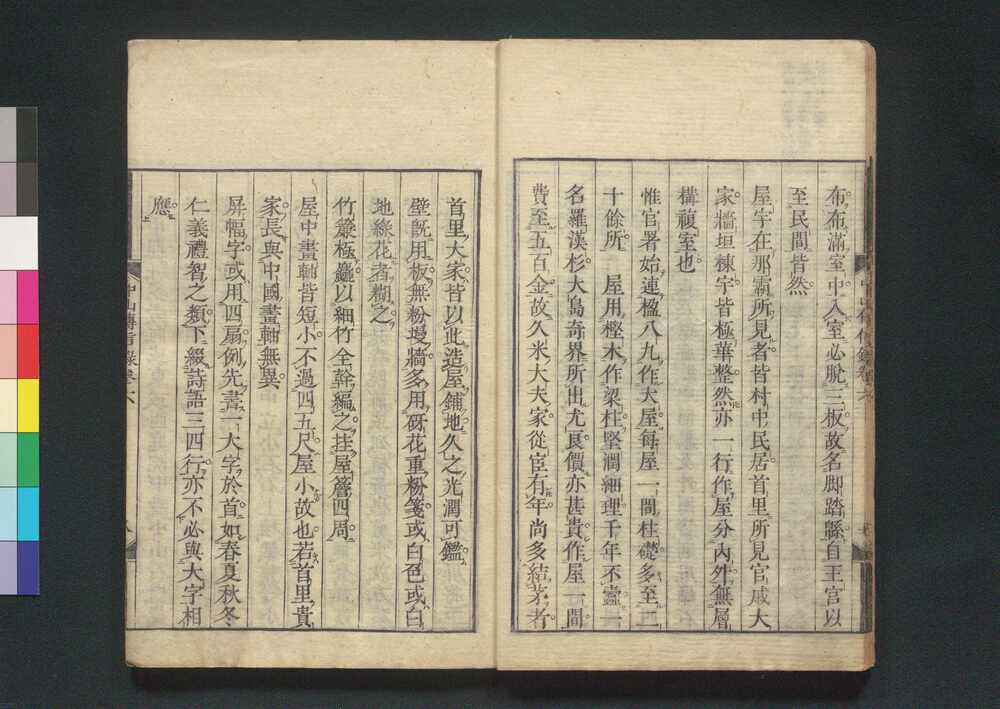 布布滿室中入室必脫三板故名脚踏緜自王宮以
至民間皆然
屋宇在那霸所見者皆村中民居首里所見官戚大
家牆垣棟宇皆極華整然亦一行作屋分内外無層
構複室也
惟官署始連楹八九作大屋每屋一間柱礎多至二
十餘所 屋用樫木作梁柱堅潤細理千年不蠧一
名羅漢杉大島奇界所出尤良價亦甚貴作屋一間
費至五百金故久米大夫家從宦有年尚多結茅者
首里大家皆以此造屋鋪地久之光潤可鑑
壁旣用板無粉墁牆多用砑花重粉箋或白色或白
地綠花者糊之
竹簾極麤以細竹全幹編之挂屋簷四周
屋中畫軸皆短小不過四五尺屋小故也若首里貴
家長與中國畫軸無異
屏幅字或用四扇例先書一大字於首如春夏秋冬
仁義禮智之類下綴詩語三四行亦不必與大字相
應
中山傳信錄卷六